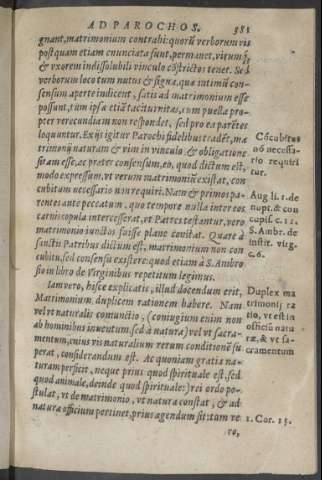 AD PAROCHOS. 381
gnant, matrimonium contrahi: quorũ verborum vis
postquam etiam enunciata sunt, permanet, virumq́;
& vxorem indissolubili vinculo cõstrictos tenet. Sed
verborum loco tum nutus & signa, quæ intimũ con-
sensum aperte indicent, satis ad matrimonium esse
possunt, tum ipsa etiã taciturnitas, cum puella pro-
pter verecundiam non respondet, sed pro ea parẽtes
loquuntur. Ex ijs igitur Parochi fidelibus tradẽt, ma
trimonij naturam & vim in vinculo & obligatione
sitam esse, ac præter consensum, eo, quod dictum est,
modo expressum, vt verum matrimoniũ existat, con
cubitum necessario non requiri. Nam & primos pa-
rentes ante peccatum, quo tempore nulla inter eos
carnis copula intercesserat, vt Patres testantur, vero
matrimonio iunctos fuisse plane constat. Quare à
sanctis Patribus dictum est, matrimonium non con
cubitu, sed consensu existere: quod etiam à S. Ambro
sio in libro de Virginibus repetitum legimus.
Iam vero, hisce explicatis, illud docendum erit,
Matrimonium duplicem rationem habere. Nam
vel vt naturalis coniunctio, (coniugium enim non
ab hominibus inuentum, sed à natura) vel vt sacra-
mentum, cuius vis naturalium rerum conditionẽ su
perat, considerandum est. Ac quoniam gratia na-
turam perficit, neque prius quod spirituale est, sed
quod animale, deinde quod spirituale: rei ordo po-
stulat, vt de matrimonio, vt natura constat, & ad
naturæ officium pertinet, prius agendum sit: tam re
ro,
Cõcubitus
nõ necessa-
rio requiri
tur.
Aug li. 1. de
nupt. & con
cupis. c. 11.
S. Ambr. de
instit. virg.
c. 6.
Duplex ma
trimonij ra
tio, vt est in
officiũ natu
ræ, & vt sa-
cramentum
1. Cor. 15.